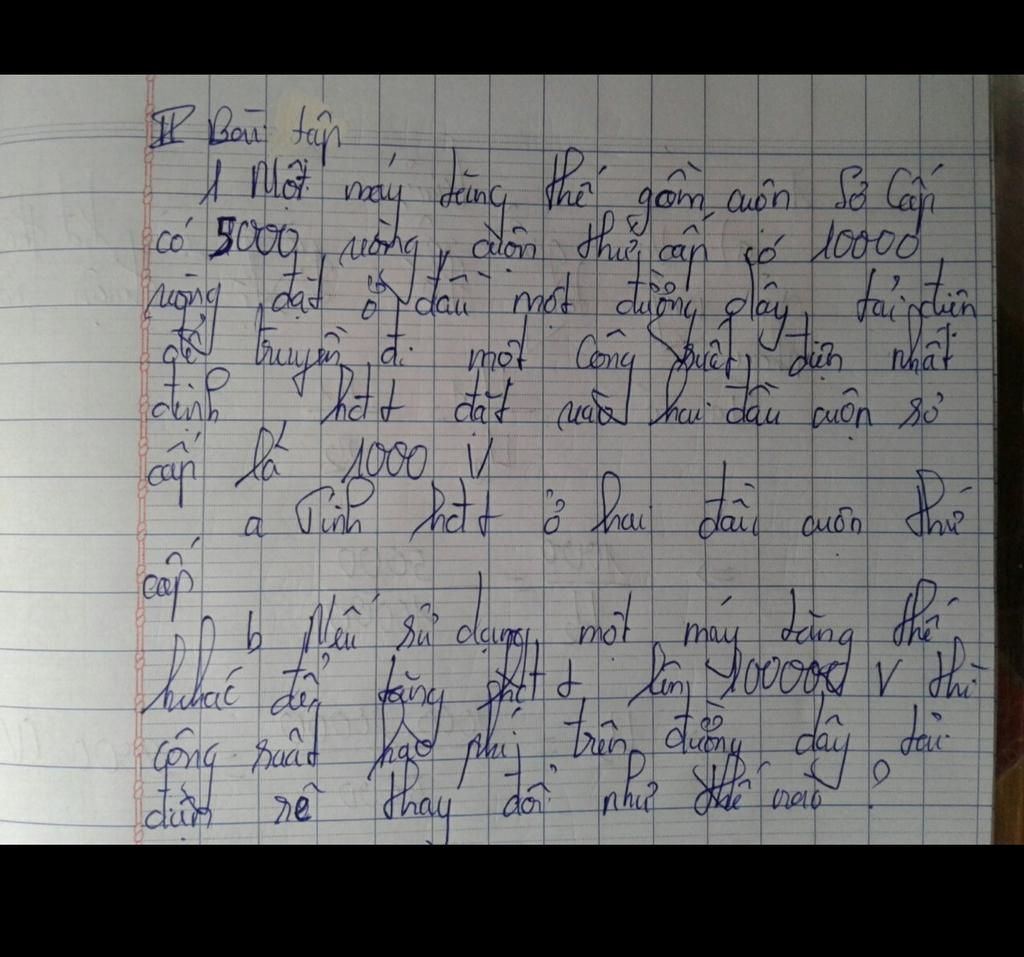 II Bài tập
1 Một máy tăng thế gồm cuộn sơ Cấp
có 5000 vòng, cuộn thứ cấp có 10000
vòng đặt ở đầu một đường dây tải điện
để truyền đi một Công suất điện nhất
định hđt đặt vào hai đầu cuộn sơ
cấp là 1000 V
a Tính hđt ở hai đầu cuộn thứ
cấp
b Nếu sử dụng một máy tăng thế
khác để tăng hđt lên V thì
công suất hao phí trên đường dây tải
điện sẽ thay đổi như thế nào ?